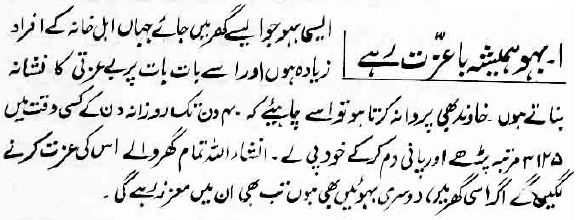 ۱۔ بہو ہمیشہ باعزّت رہے
ایسی بہو جو ایسے گھر میں جائے جہاں اہل خانہ کے افراد
زیادہ ہوں اور اسے بات بات پر بے عزتی کا نشانہ
بناتے ہوں۔ خاوند بھی پروا نہ کرتا ہو تو اسے چاہیئے کہ ۴۰ دن تک روزانہ دن کے کسی وقت میں
۳۱۲۵ مرتبہ پڑھے اور پانی دم کر کے خود پی لے۔ انشاء اللہ تمام گھر والے اس کی عزت کرنے
لگیں گے اگر اسی گھر میں، دوسری بہوئیں بھی ہوں تب بھی ان میں معزز رہے گی۔